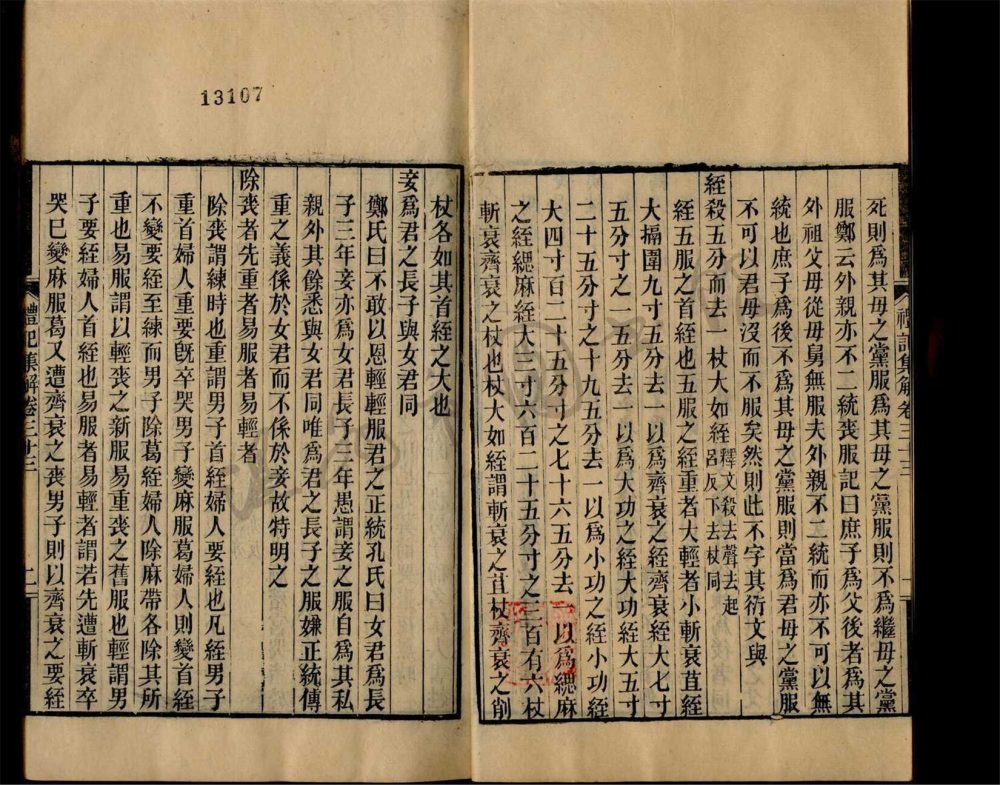 13107
死則爲其母之黨服爲其母之黨服則不爲繼母之黨
服鄭云外親亦不二統喪服記曰庶子爲父後者爲其
外祖父母從母舅無服夫外親不二統而亦不可以無
統也庶子爲後不爲其母之黨服則當爲君母之黨服
不可以君母沒而不服矣然則此不字其衍文與
絰殺五分而去一杖大如絰釋文殺去聲去起呂反下去杖同
絰五服之首絰也五服之絰重者大輕者小斬衰苴絰
大搹圍九寸五分去一以爲齊衰之絰齊衰絰大七寸
五分寸之一五分去一以爲大功之絰大功絰大五寸
二十五分寸之十九五分去一以爲小功之絰小功絰
大四寸百二十五分寸之七十六五分去一以爲緦麻
之絰緦麻絰大三寸六百二十五分寸之三百有六杖
斬衰齊衰之杖也杖大如絰謂斬衰之苴杖齊衰之削
禮記集解卷三十三
杖各如其首絰之大也
妾爲君之長子與女君同
鄭氏曰不敢以恩輕輕服君之正統孔氏曰女君爲長
子三年妾亦爲女君長子三年愚謂妾之服自爲其私
親外其餘悉與女君同唯爲君之長子之服嫌正統傳
重之義係於女君而不係於妾故特明之
除喪者先重者易服者易輕者
除喪謂練時也重謂男子首絰婦人要絰也凡絰男子
重首婦人重要旣卒哭男子變麻服葛婦人則變首絰
不變要絰至練而男子除葛絰婦人除麻帶各除其所
重也易服謂以輕喪之新服易重喪之舊服也輕謂男
子要絰婦人首絰也易服者易輕者謂若先遭斬衰卒
哭已變麻服葛又遭齊衰之喪男子則以齊衰之要絰
禮記集解卷三十三
二